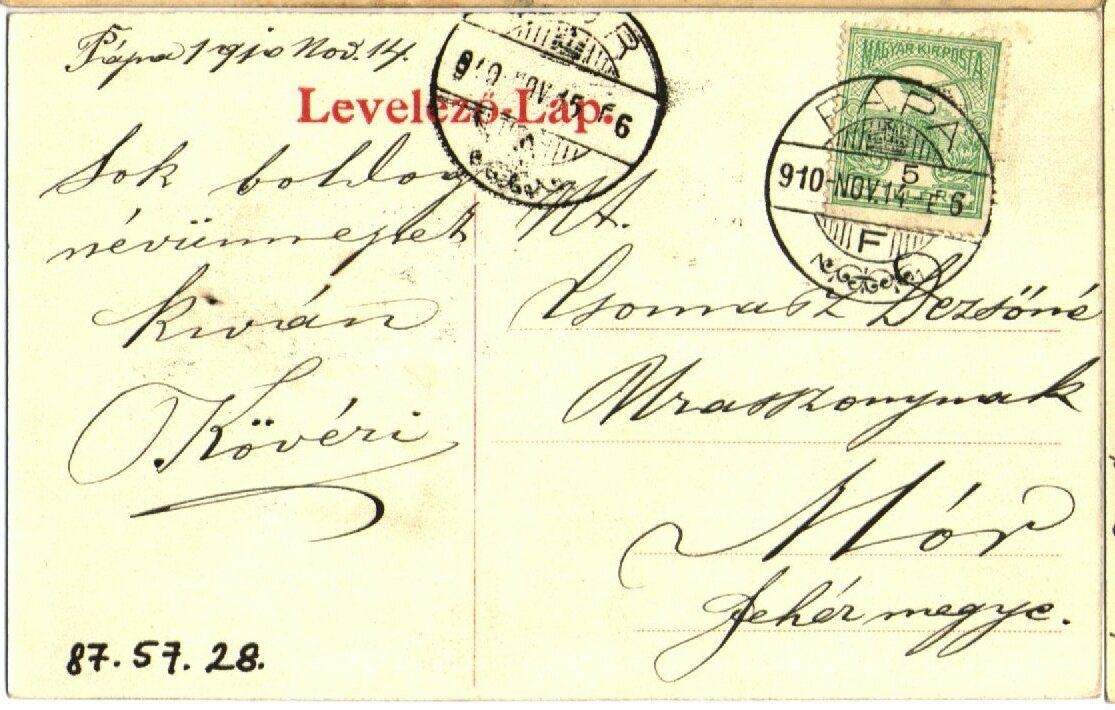 Pápa 1910 Nov. 14.
Levelező-Lap.
910 NOV. 15. F6
MAGYAR KIR. POSTA
PÁPA
5
910-NOV.14
F
Sok boldog
névünnepet
kiván
Kövéri
Nt.
Csomasz Dezsőné
Uraszonynak
Mór
Fehérmegye.
87.57.28.